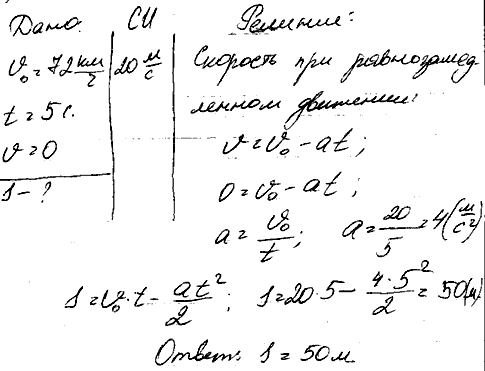 Дано: СИ Решение:
v₀ = 72 км/ч 20 м/с Скорость при равнозамед
t = 5 с. ленном движении:
v = 0 v = v₀ - at;
s - ? 0 = v₀ - at;
a = v₀/t; a = 20/5 = 4 (м/с²)
s = v₀·t - at²/2; s = 20·5 - 4·5²/2 = 50 (м)
Ответ: s = 50 м.